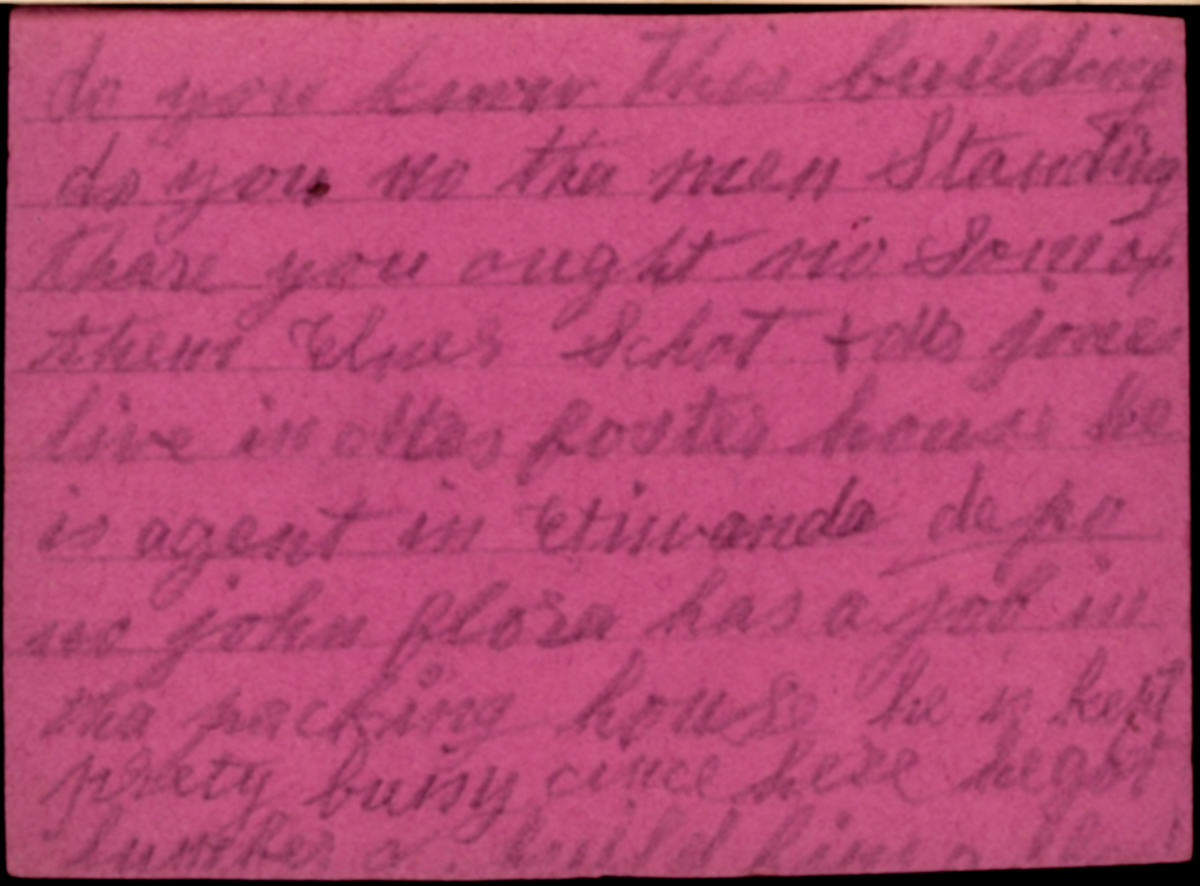 do you know this building
do you no the men Standing
thare you ought no Som of
them Elmer Schot + jones
live in ottes foster house he
is agent in Etiwanda depo
no john flora has a job in
tha packing house he is kept
prety buisy cince here he got
lumber build him a